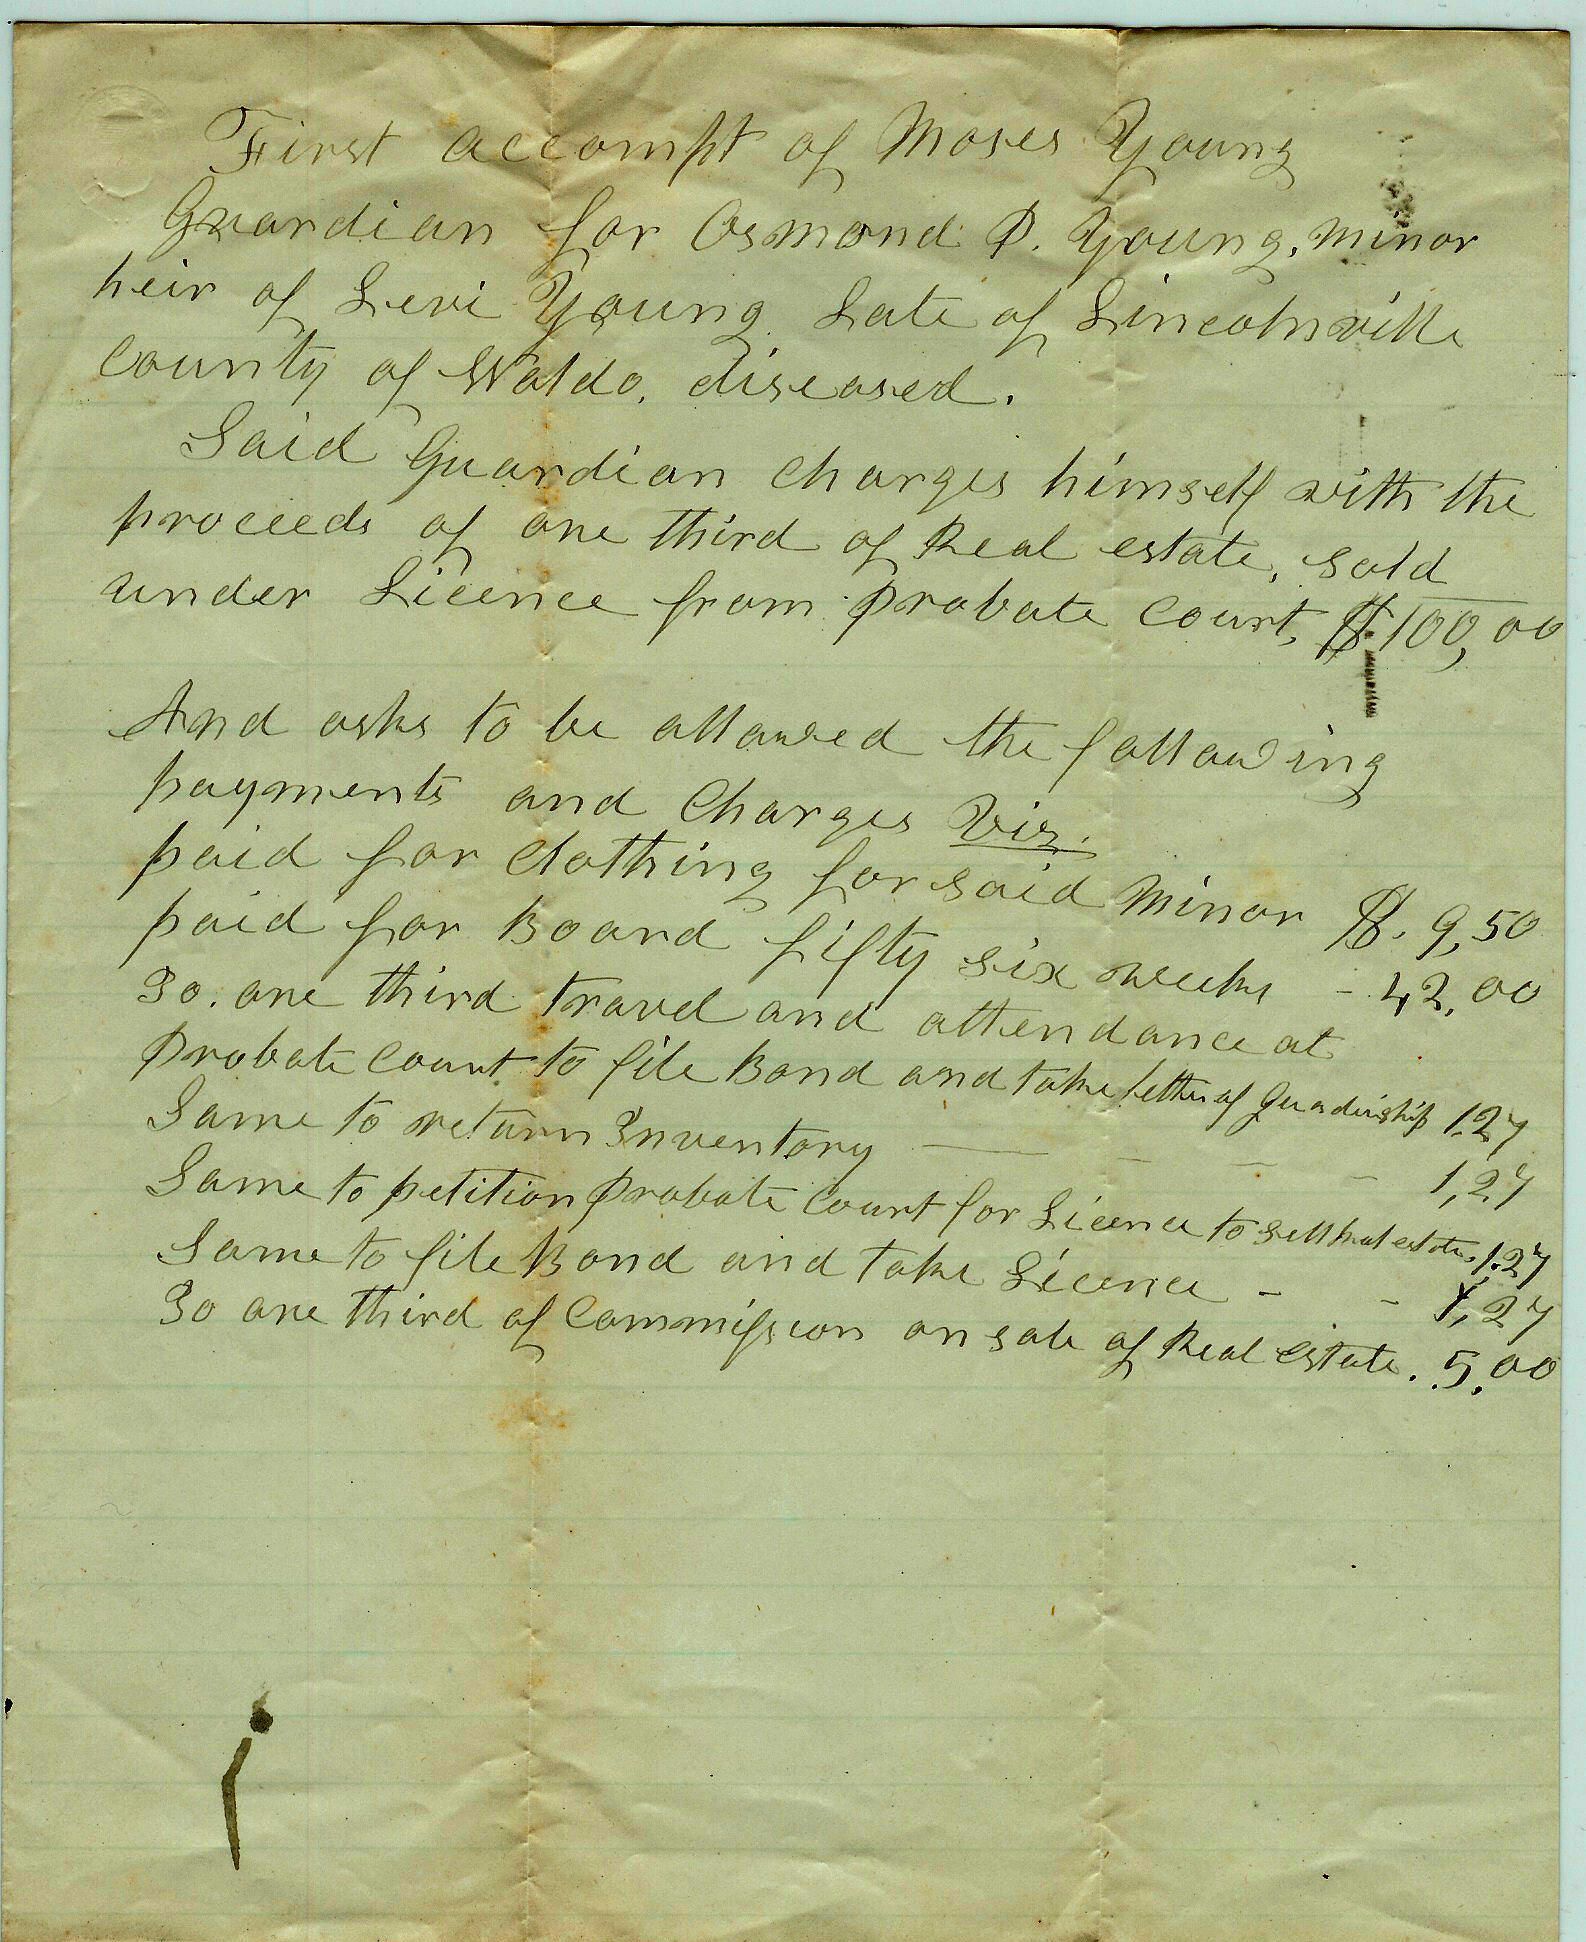 First accompt of Moses Young
Guardian for Osmond P. Young, minor
heir of Levi Young Late of Lincolnville
County of Waldo, diseased.
Said Guardian charges himself with the
proceeds of one third of Real estate, sold
under Licence from Probate Court, $100,00
And asks to be allowed the following
payments and Charges Viz.
paid for Clothing for said Minor $. 9,50
paid for Board fifty six weeks - 42,00
To. one third travel and attendance at
Probate Court to file Bond and take letter of Guardinship 1.27
Same to return Inventory - - - - 1,27
Same to petition Probate Court for Licence to sell Real estate. 1.27
Same to file Bond and take Licence - - 1,27
To one third of Commission on sale of Real Estate. 5,00